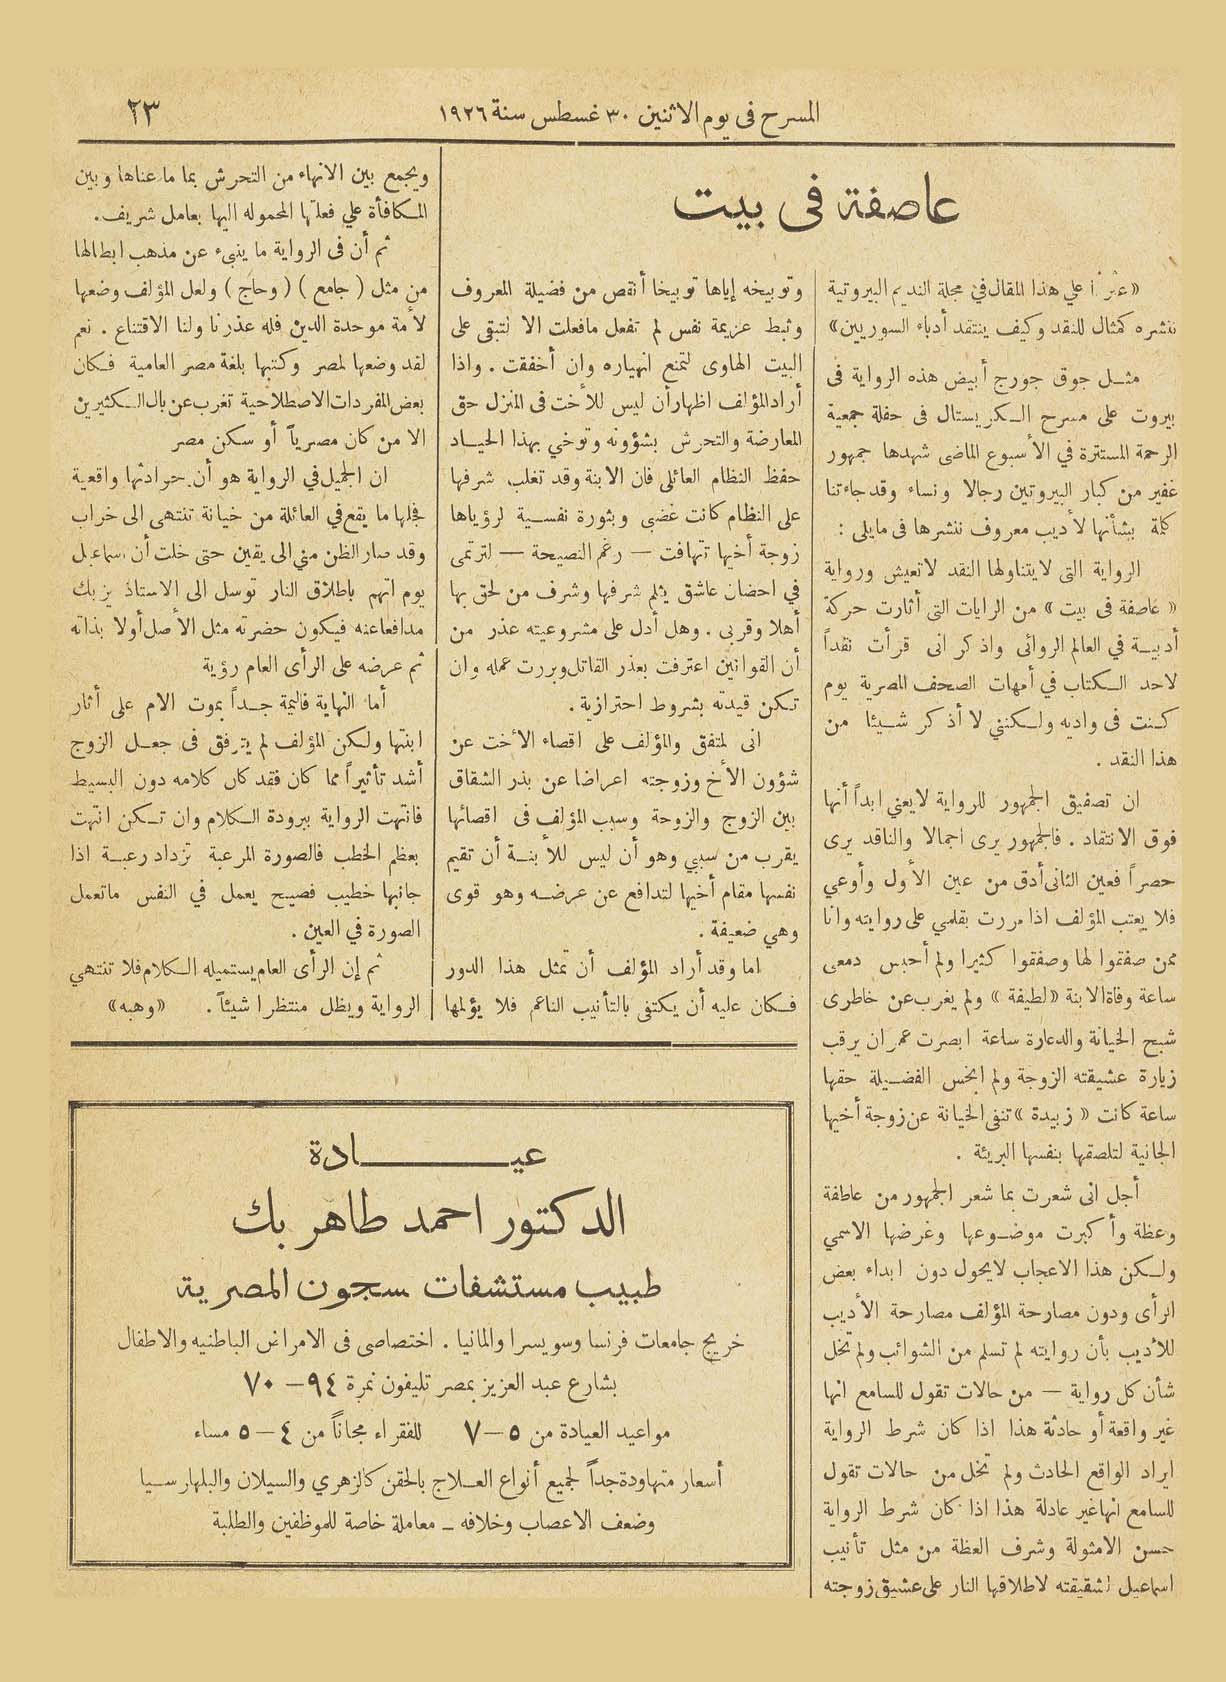 المسرح فى يوم الاثنين ٣٠ غسطس سنة ١٩٢٦
٢٣
عاصفة فى بيت
«عثرنا علي هذا المقال في مجلة النديم البيروتية
ننشره كمثال للنقد وكيف ينتقد أدباء السوريين»
مثل جوق جورج أبيض هذه الرواية فى
بيروت على مسرح الكريستال فى حفلة جمعية
الرحمة المستترة في الأسبوع الماضى شهدها جمهور
غفير من كبار البيروتين رجالا ونساء وقد جاءتنا
كلمة بشأنها لأديب معروف ننشرها فى مايلى :
الرواية التى لايتناولها النقد لاتعيش ورواية
«عاصفة فى بيت» من الرايات التى أثارت حركة
أدبية في العالم الروائى واذكر انى قرأت نقداً
لاحد الكتاب في أمهات الصحف المصرية يوم
كنت فى واديه ولكننى لا أذكر شيئا من
هذا النقد .
ان تصفيق الجمهور للرواية لايعني ابداً أنها
فوق الانتقاد . فالجمهور يرى اجمالا والناقد يرى
حصراً فعين الثانى أدق من عين الأول وأوعي
فلا يعتب المؤلف اذا مررت بقلمي على روايته وانا
ممن صفقوا لها وصفقوا كثيرا ولم أحبس دمعى
ساعة وفاة الابنة «لطيفة» ولم يغرب عن خاطرى
شبح الخيانة والدعارة ساعة ابصرت عمران يرقب
زيارة عشيقته الزوجة ولم ابخس الفضيلة حقها
ساعة كانت «زبيدة» تنفى الخيانة عن زوجة أخيها
الجانية لتلصقها بنفسها البريئة .
أجل انى شعرت بما شعر الجمهور من عاطفة
وعظة وأكبرت موضوعها وغرضها الاسمي
ولكن هذا الاعجاب لايحول دون ابداء بعض
الرأى ودون مصارحة المؤلف مصارحة الأديب
للأديب بأن روايته لم تسلم من الشوائب ولم تخل
شأن كل رواية — من حالات تقول للسامع انها
غير واقعة أو حادثة هذا اذا كان شرط الرواية
ايراد الواقع الحادث ولم تخل من حالات تقول
للسامع انها غير عادلة هذا اذا كان شرط الرواية
حسن الامثولة وشرف العظة من مثل تأنيب
اسماعيل لشقيقته لاطلاقها النار على عشيق زوجته
وتوبيخه إياها توبيخا أنقص من فضيلة المعروف
وثبط عزيمة نفس لم تفعل مافعلت الا لتبقى على
البيت الهاوى لتمنع انهياره وان أخفقت . واذا
أراد المؤلف اظهار أن ليس للأخت فى المنزل حق
المعارضة والتحرش بشؤونه وتوخي بهذا الحياد
حفظ النظام العائلى فان الابنة وقد تغلب شرفها
على النظام كانت غضبى وبثورة نفسية لرؤياها
زوجة أخيها تتهافت — رغم النصيحة — لترتمى
في احضان عاشق يثلم شرفها وشرف من لحق بها
أهلا وقربى . وهل أدل على مشروعيته عذر من
أن القوانين اعترفت بعذر القاتل وبررت عمله وان
تكن قيدته بشروط احترازية .
انى لمتفق والمؤلف على اقصاء الأخت عن
شؤون الأخ وزوجته اعراضا عن بذر الشقاق
بين الزوج والزوجة وسبب المؤلف فى اقصائها
يقرب من سببي وهو أن ليس للأبنة أن تقيم
نفسها مقام أخيها لتدافع عن عرضه وهو قوى
وهي ضعيفة .
اما وقد أراد المؤلف أن تمثل هذا الدور
فكان عليه أن يكتفى بالتأنيب الناعم فلا يؤلمها
ويجمع بين الانهاء من التحرش بما ما عناها وبين
المكافأة علي فعلتها المحموله اليها بعامل شريف .
ثم أن فى الرواية ما ينبىء عن مذهب ابطالها
من مثل ( جامع ) ( وحاج ) ولعل المؤلف وضعها
لأمة موحدة الدين فله عذرنا ولنا الاقتناع . نعم
لقد وضعها لمصر وكتبها بلغة مصر العامية فكان
بعض المفردات الاصطلاحية تغرب عن بال الكثيرين
الا من كان مصرياً أو سكن مصر
ان الجميل في الرواية هو أن حوادثها واقعية
فجلها ما يقع في العائلة من خيانة تنتهى الى خراب
وقد صار الظن مني الى يقين حتى خلت أن اسماعيل
يوم اتهم باطلاق النار توسل الى الاستاذ يزبك
مدافعا عنه فيكون حضرته مثل الأصل أولا بذاته
ثم عرضه على الرأى العام رؤية
أما النهاية فاليمة جداً بموت الام على أثار
ابنتها ولكن المؤلف لم يترفق فى جعل الزوج
أشد تأثيراً مما كان فقد كان كلامه دون البسيط
فانتهت الرواية ببرودة الكلام وان تكن انتهت
بعظم الخطب فالصورة المرعبة تزداد رعبة اذا
جانبها خطيب فصيح يعمل في النفس ماتعمل
الصورة في العين .
ثم إن الرأى العام يستميله الكلام فلا تنتهي
الرواية ويظل منتظرا شيئاً . «وهبه»
عيادة
الدكتور احمد طاهر بك
طبيب مستشفات سجون المصرية
خريج جامعات فرنسا وسويسرا والمانيا . اختصاصى فى الامراض الباطنيه والاطفال
بشارع عبد العزيز بمصر تليفون نمرة ٩٤ – ٧٠
مواعيد العيادة من ٥ – ٧ للفقراء مجاناً من ٤ – ٥ مساء
أسعار متهاودة جداً لجميع أنواع العلاج بالحقن كالزهري والسيلان والبلهارسيا
وضعف الاعصاب وخلافه – معاملة خاصة للموظفين والطلبة